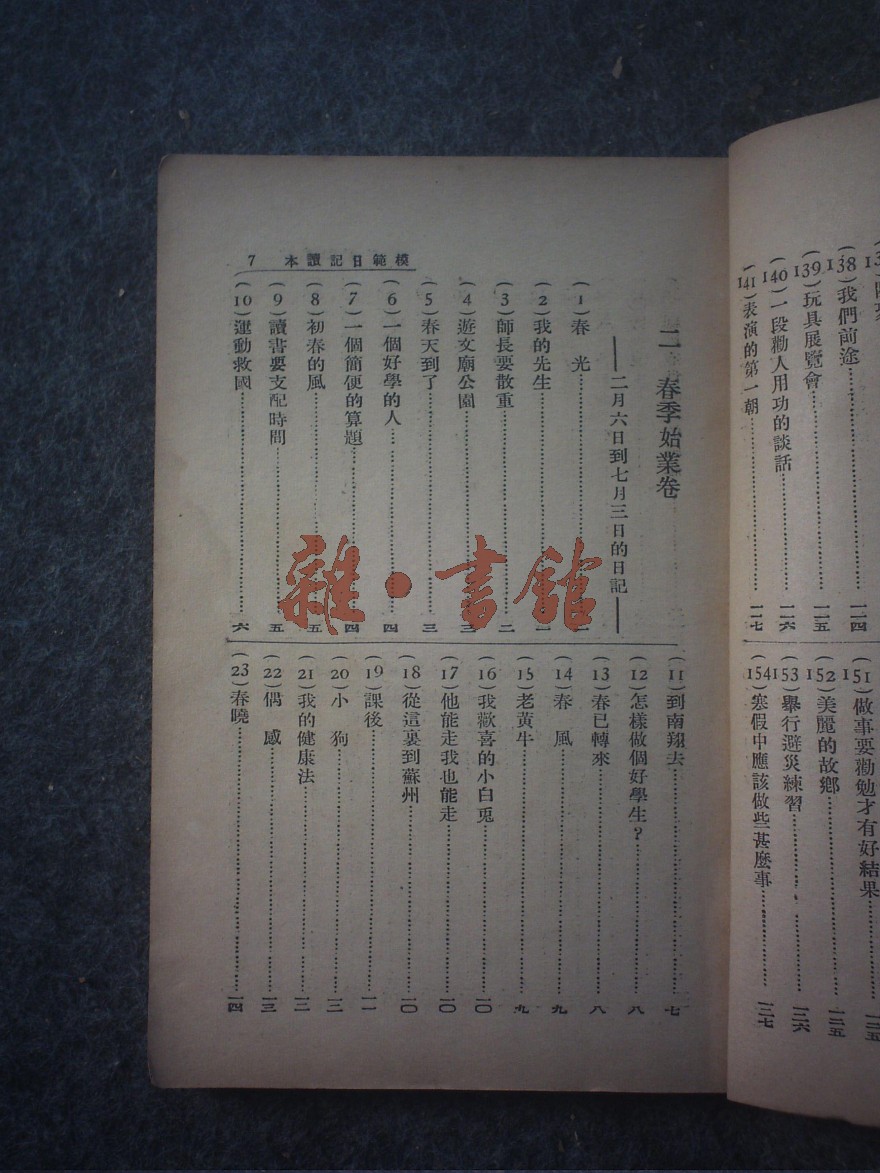 (138)我們前途……一一四
(139)玩具展覽會……一一五
(140)一段勸人用功的談話……一一六
(141)表演的第一朝……一一七
(151)做事要勤勉才有好結果……一二五
(152)美麗的故鄉……一二五
(153)舉行避災練習……一二六
(154)寒假中應該做些甚麼事……一二七
模範日記讀本 7
二 春季始業卷
——二月六日到七月三日的日記——
(1)春 光……一
(2)我的先生……一
(3)師長要敬重……二
(4)遊文廟公園……三
(5)春天到了……三
(6)一個好學的人……四
(7)一個簡便的算題……四
(8)初春的風……五
(9)讀書要支配時間……五
(10)運動救國……六
(11)到南翔去……七
(12)怎樣做個好學生？……八
(13)春已轉來……八
(14)春 風……九
(15)老黃牛……九
(16)我歡喜的小白兎……一〇
(17)他能走我也能走……一〇
(18)從這裏到蘇州……一〇
(19)課後……一一
(20)小 狗……一二
(21)我的健康法……一二
(22)偶 感……一三
(23)春曉……一四
雜·書館